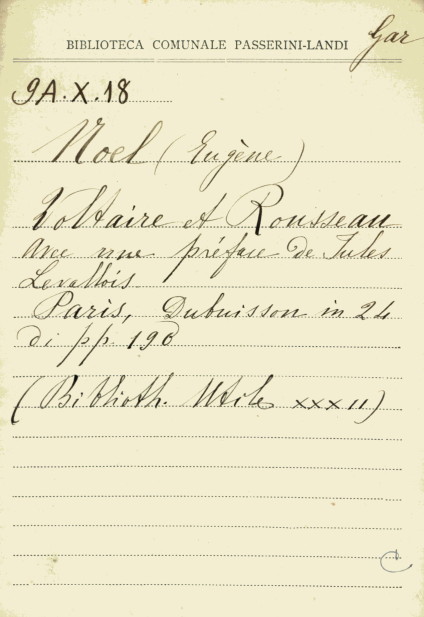 Gar
BIBLIOTECA COMUNALE PASSERINI-LANDI
9A.X.18
Noel (Eugène)
Voltaire et Rousseau
avec une préface de Jules
Levallois
Paris, Dubuisson in 24
di pp. 190
(Biblioth. Utile XXXII)